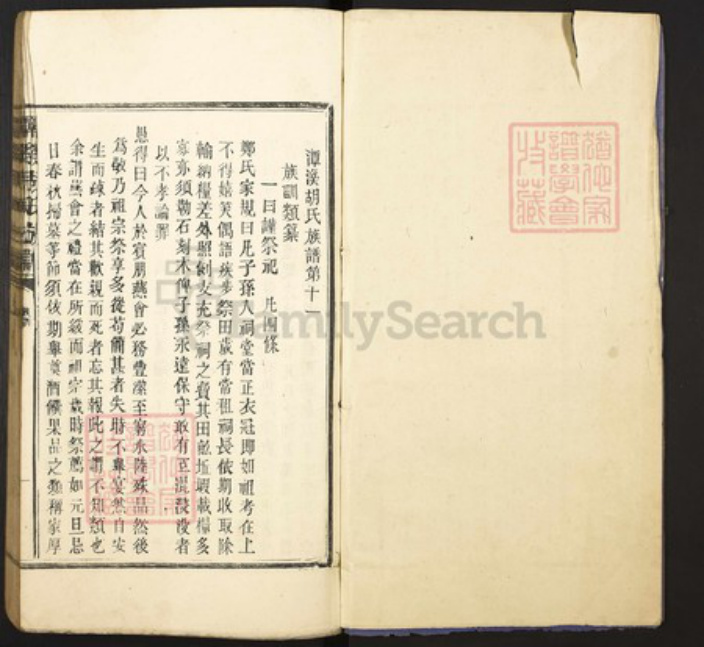 潭溪胡氏族譜第十一
族訓類纂
一曰謹祭祀 凡四條
鄭氏家規曰凡子孫入祠堂當正衣冠即如祖考在上
不得嬉笑偶語疾步祭田歲有常租祠長依期收取除
輸納糧差外照例支充祭祠之費其田畝坵塅載檔多
寡亦須勒石刻木俾子孫永遠保守敢有互混湮沒者
以不孝論罪
愚得曰今人於賓朋燕會必務豐潔至窮水陸殊品然後
為敬乃祖宗祭享多從茍簡甚者失時不舉宴然自安
生而疎者結其歡親而死者忘其報此之謂不知類也
余謂燕會之禮當在所緩而祖宗歲時祭薦如元旦忌
日春秋掃墓等節須依期舉奠酒饌果品之類稱家厚
FamilySearch